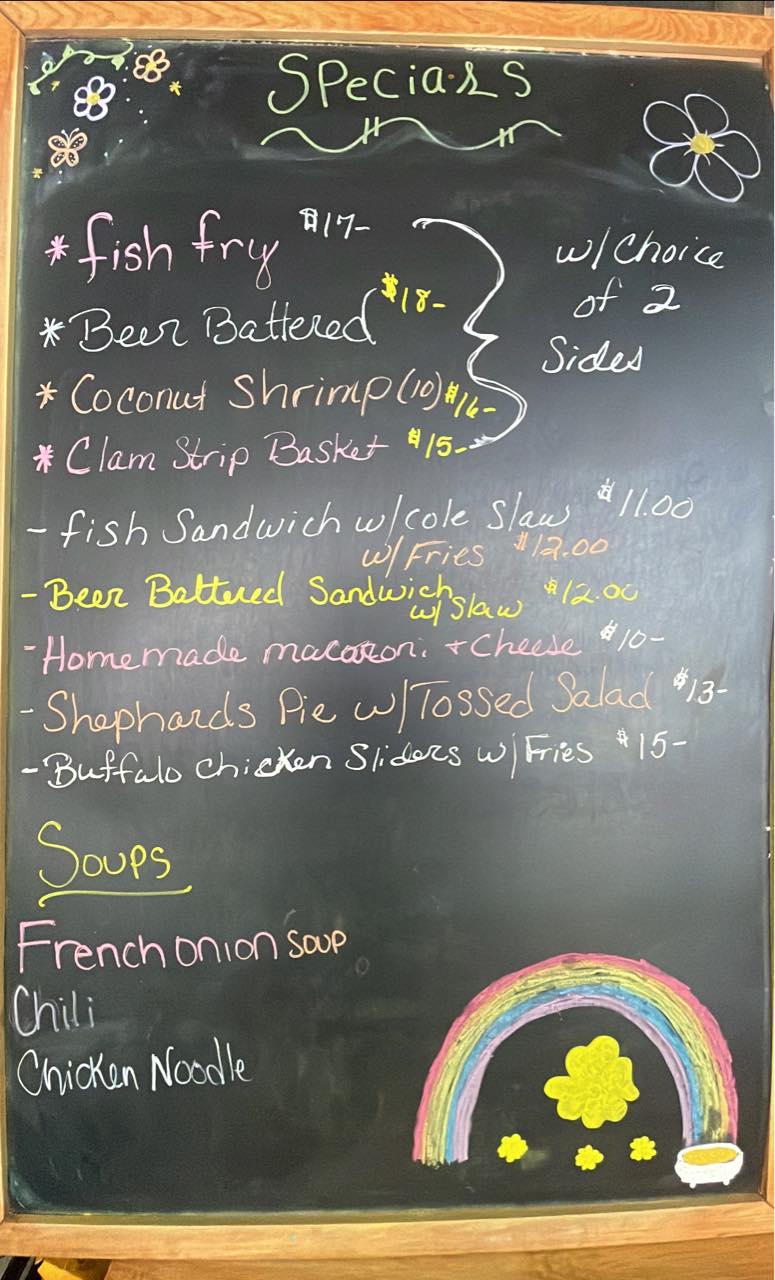 Specials
* fish fry $17-
* Beer Battered $18-
* Coconut Shrimp (10) $16-
* Clam Strip Basket $15-
w/ Choice
of 2
Sides
- fish Sandwich w/cole Slaw $11.00
w/ Fries $12.00
- Beer Battered Sandwich $12.00
w/ Slaw
- Homemade macaroni + Cheese $10-
- Shephards Pie w/Tossed Salad $13-
- Buffalo chicken Sliders w/ Fries $15-
Soups
French onion soup
Chili
Chicken Noodle